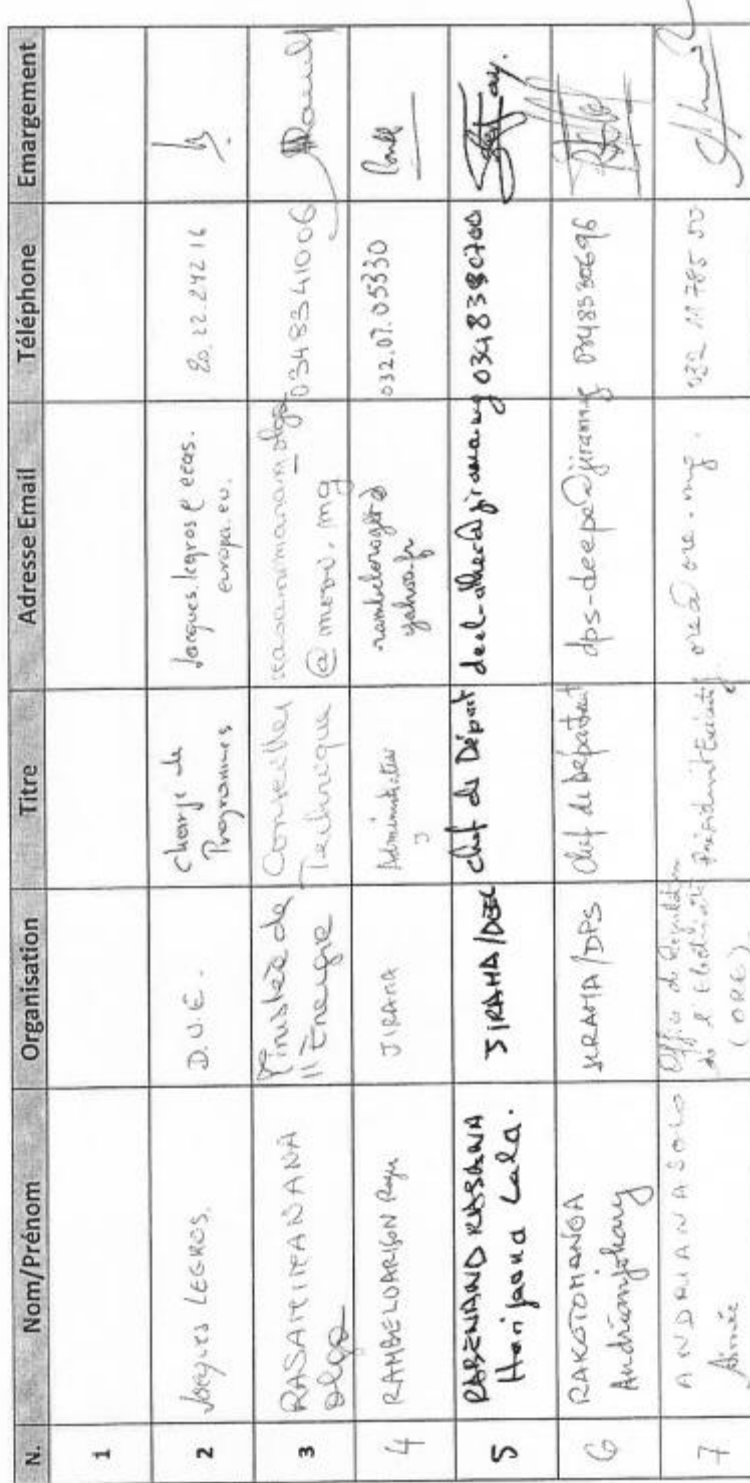 N. Nom/Prénom Organisation Titre Adresse Email Téléphone Emargement
1
2 Jacques LEGROS. D.U.E. Chargé de Programmes Jacques.legros@eeas.europa.eu. 20.22.242 16
3 RASAMIMANANA Olga Ministère de l'Energie Conseiller Technique rasamimanana_olga@meeh.mg 0348341006
4 RAMBELOARISON Roger JIRAMA Administrateur 032.07.05330
5 Harijaona Lala. JIRAMA/ Chef de Départ 034 83
6 RAKOTOMANGA JIRAMA/DPS Chef de Département dps-deepe@jirama.mg
7 ANDRIANASOLO Aimée Office de Régulation de l'Electricité (ORE) Président Exécutif ore@ore.mg. 032 11 785 50